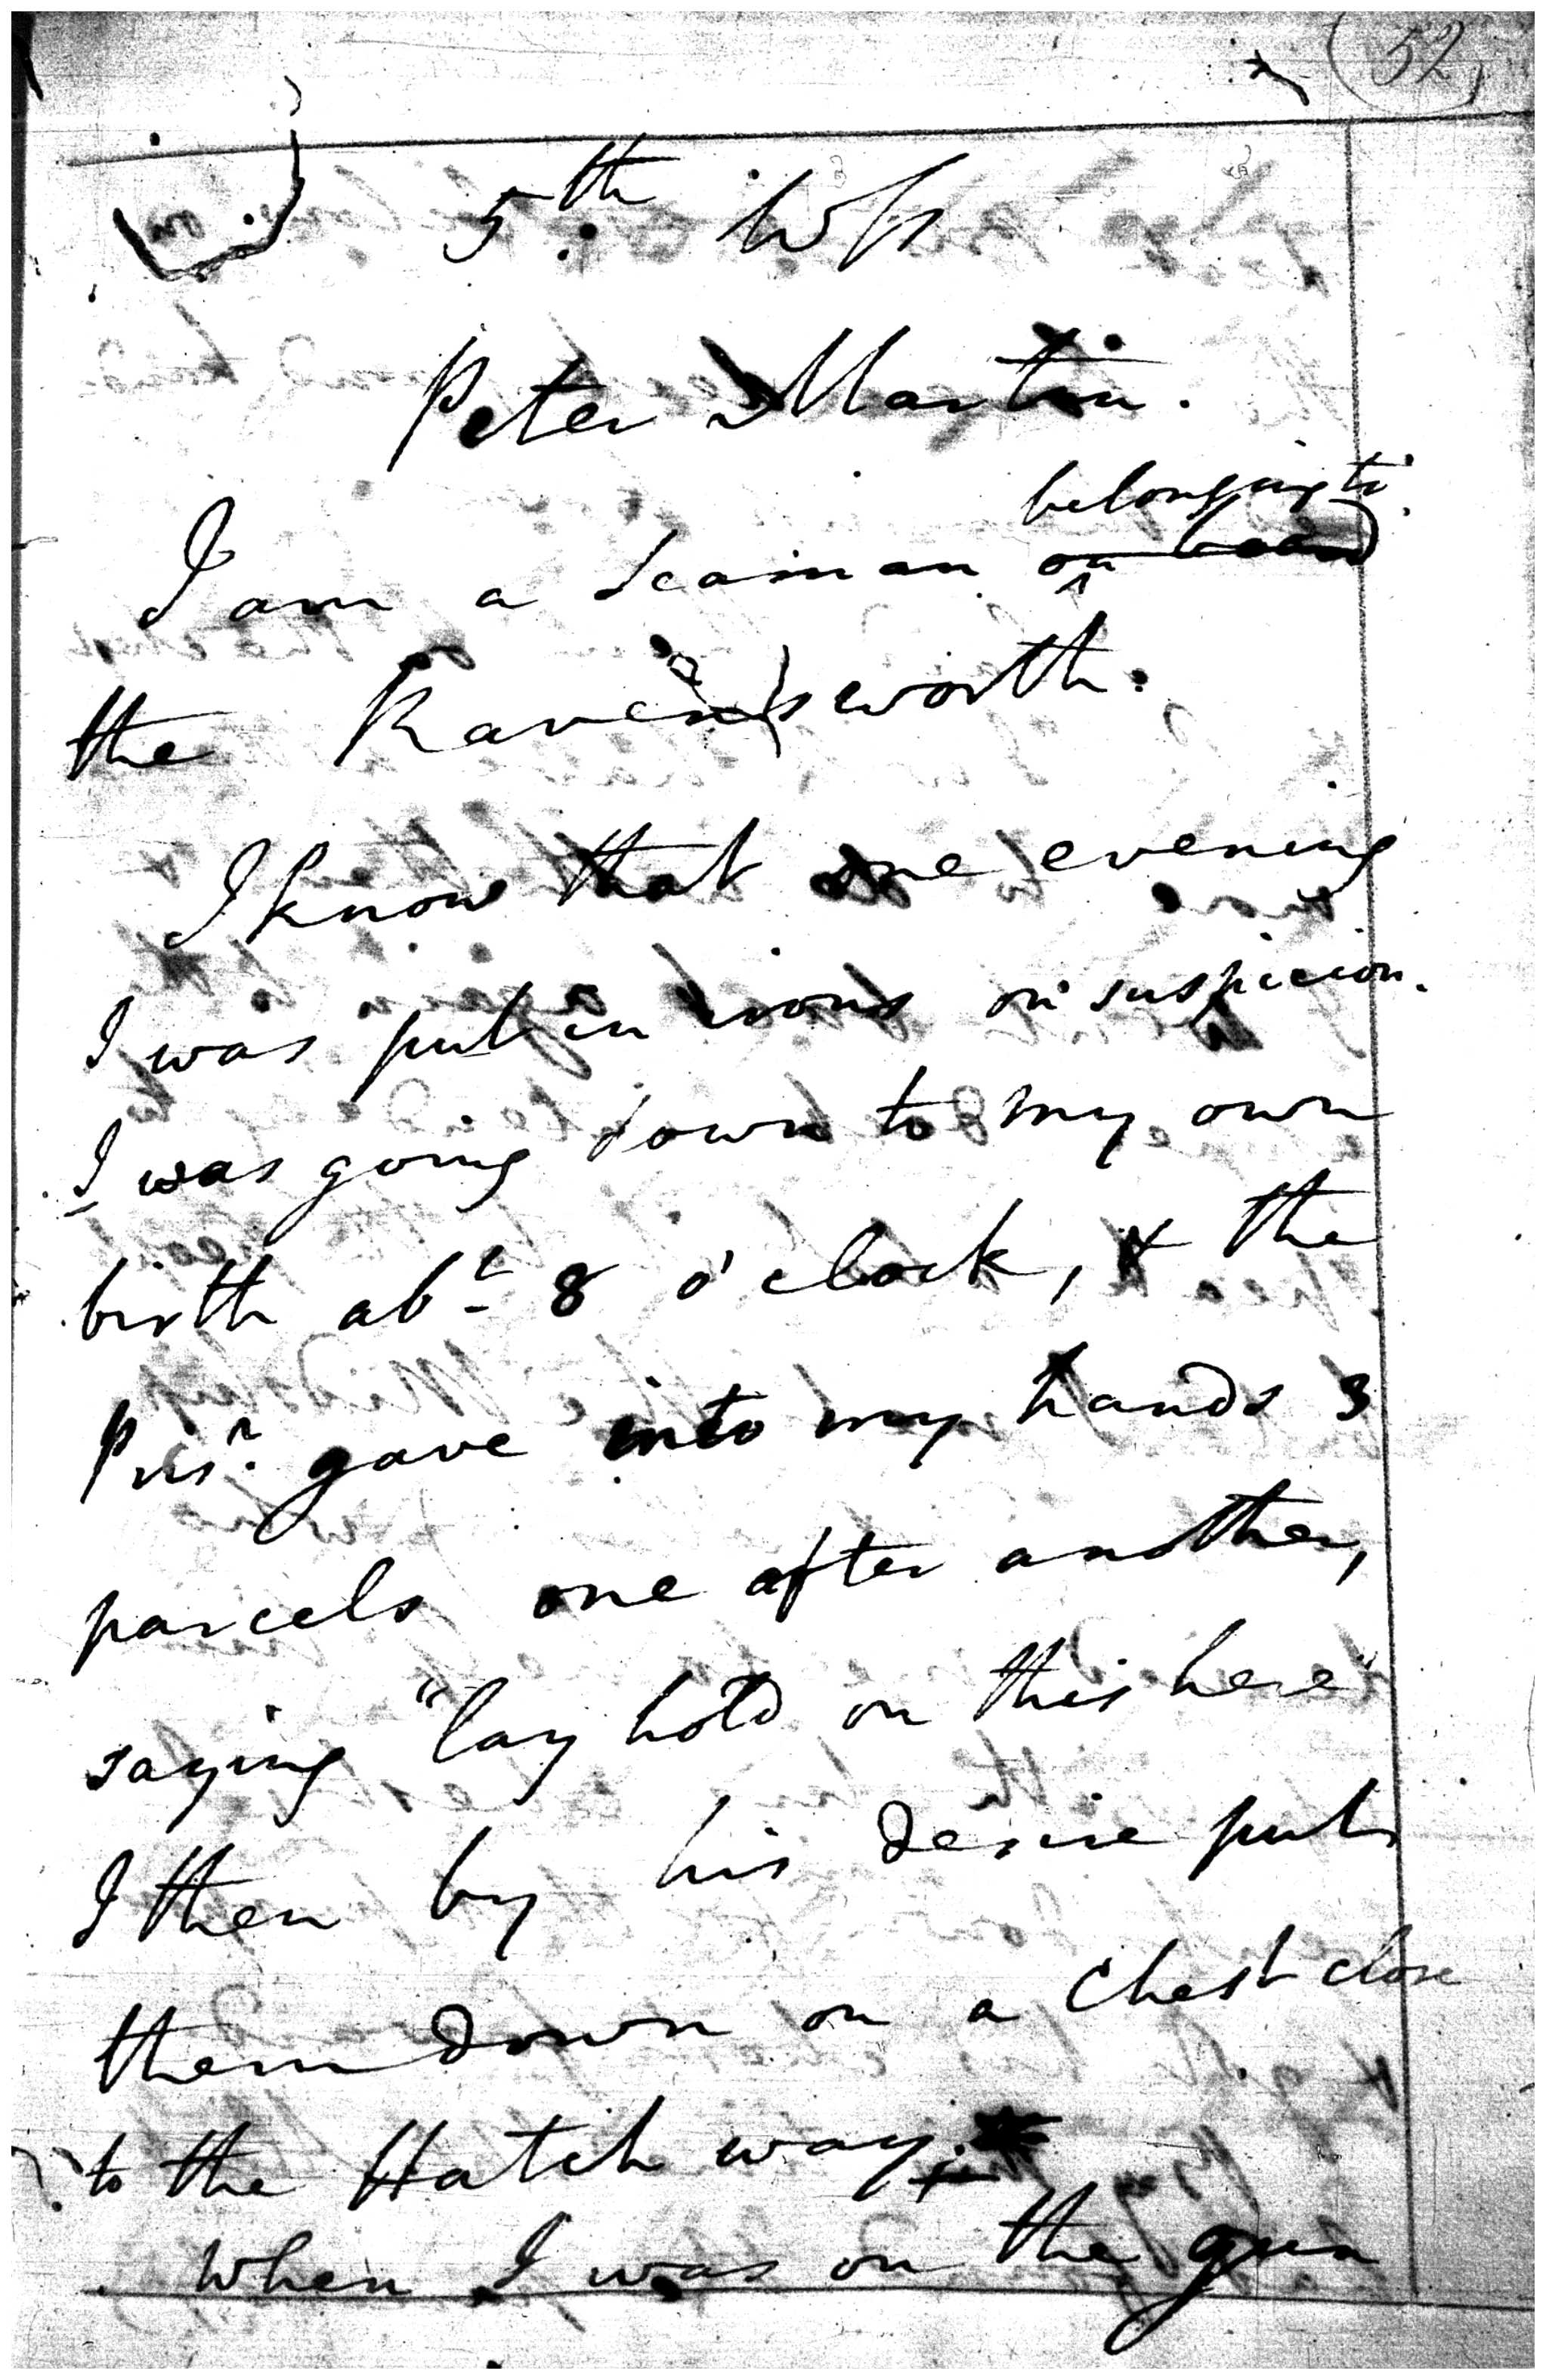 52
5th. Wss
Peter Martin.
I am a Seaman ~~on board~~ belonging to
the Ravensworth.
I know that one evening
I was put in irons on suspicion.
I was going down to my own
birth abt 8 o'clock, & the
Prisr. gave into my hands 3
parcels one after another,
saying "lay hold on this here"
I then by his desire put
them down on a Chest close
to the Hatch way.
When I was on the gun